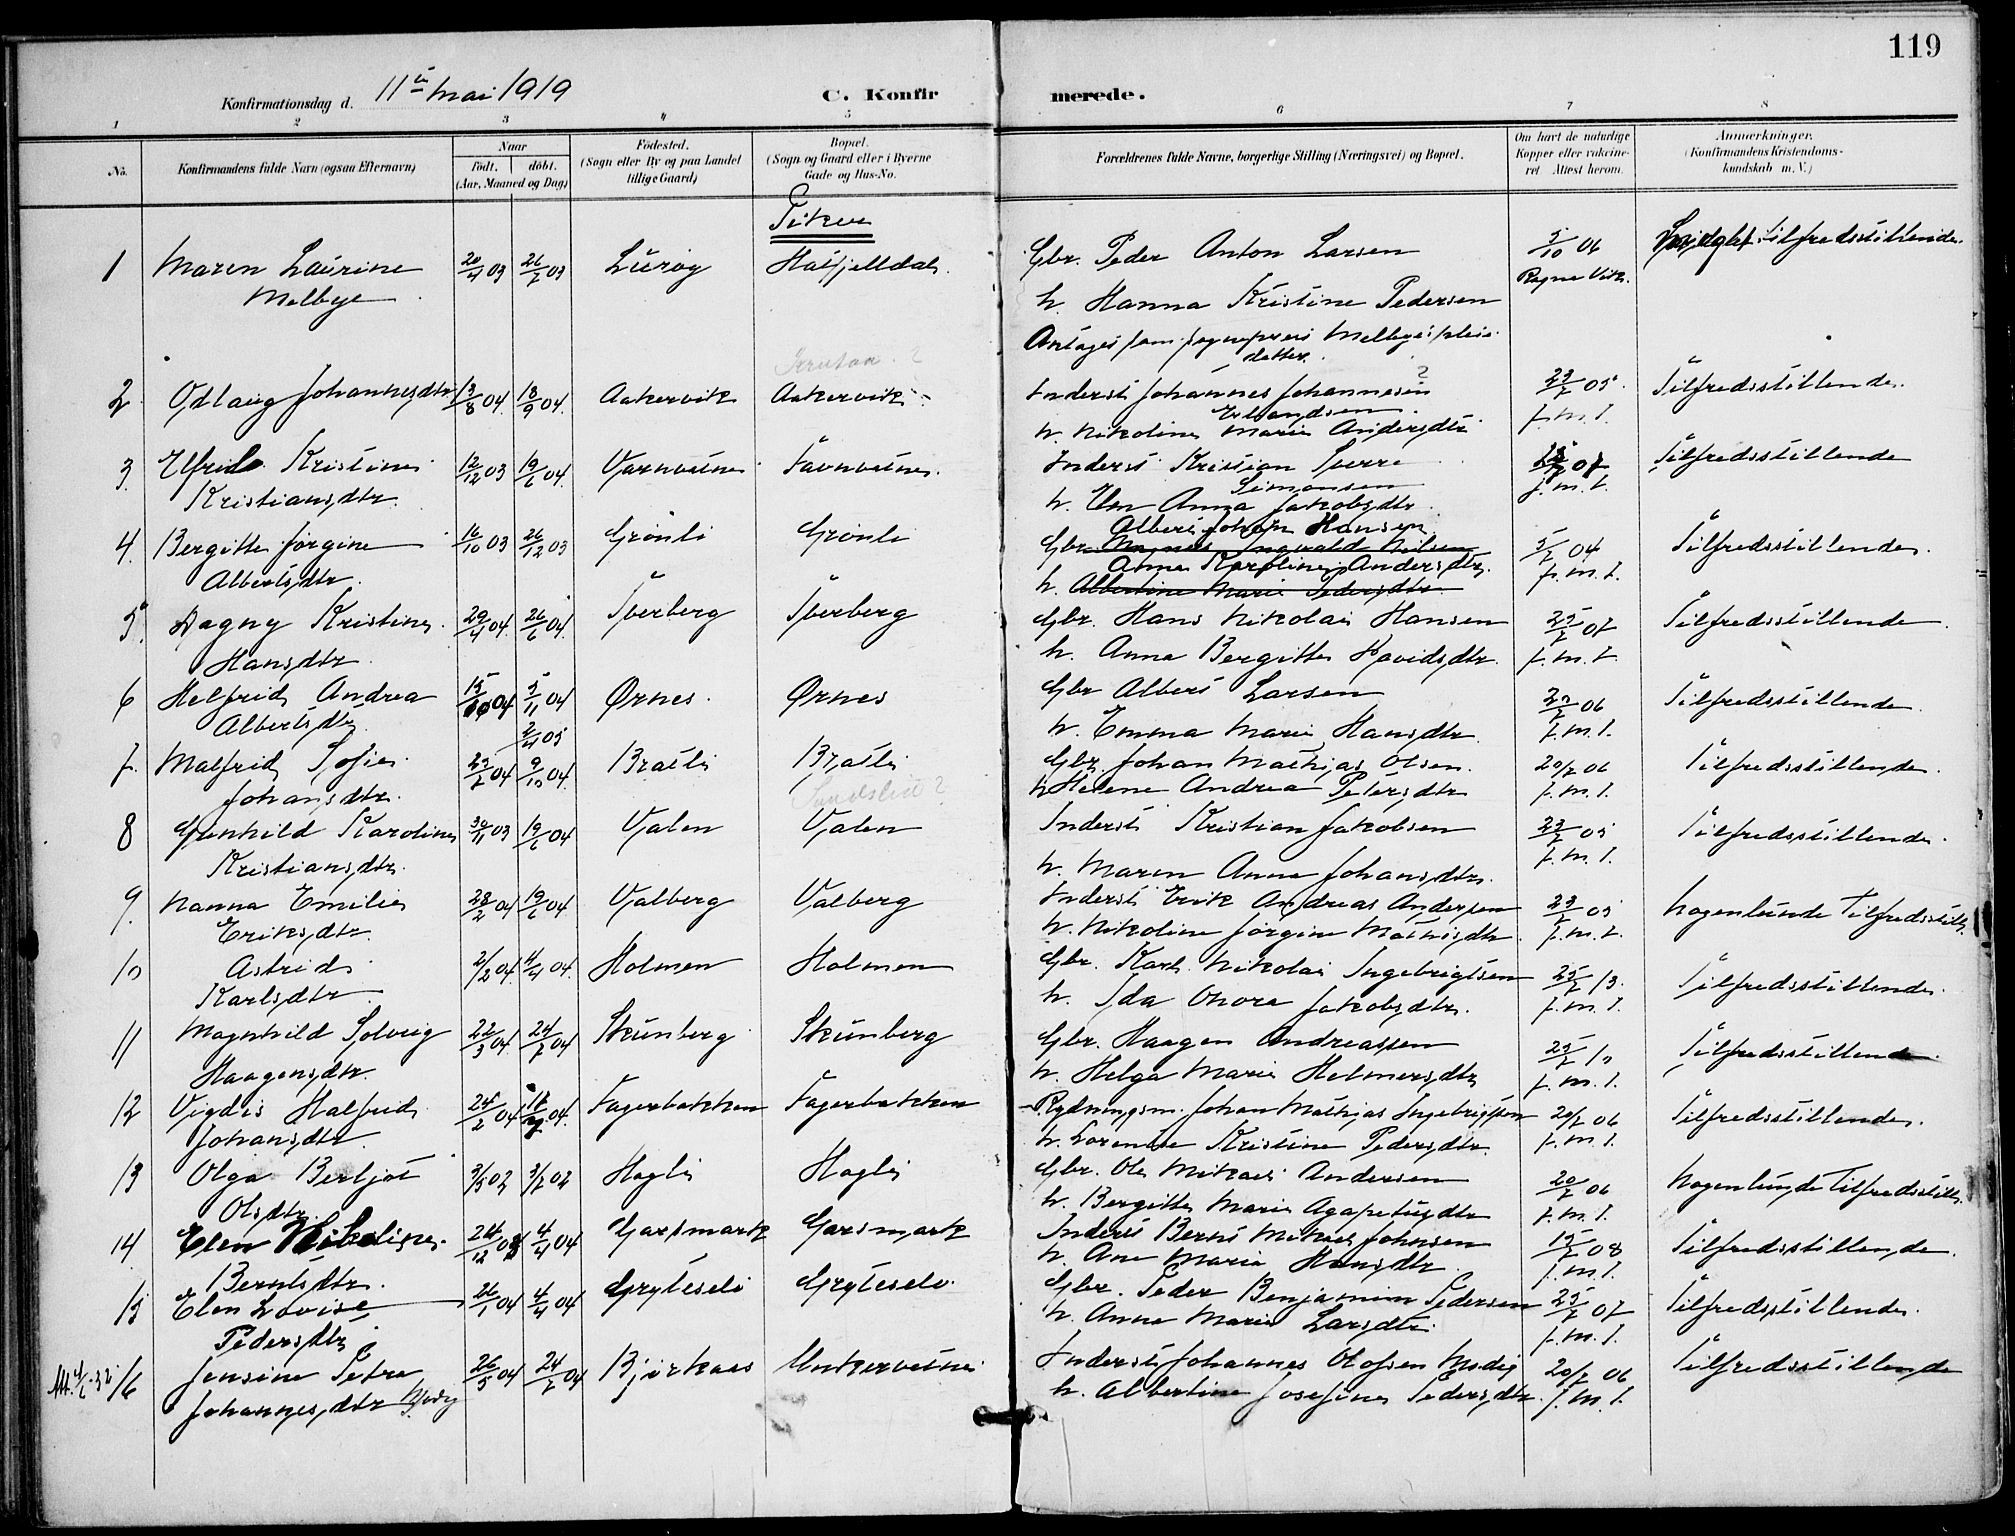 119
Konfirmationsdag d. 11te Mai 1919
C. Konfirmerede.
1 2 3 4 5 6 7 8
No. Konfirmandens fulde Navn (ogsaa Efternavn) Naar Födt. döbt. (Aar, Maaned og Dag) Födested. (Sogn eller By og paa Landet tillige Gaard) Bopæl. (Sogn og Gaard eller i Byerne Gade og Hus-No. Forældrenes fulde Navne, borgerlige Stilling (Næringsvei) og Bopæl. Om havt de naturlige Kopper eller vakcineret Attest herom. Anmærkninger. (Konfirmandens Kristendomskundskab m. V.)
Piker
1 Maren Laurine Melbye 20/4 03 Lurøy Hatfjelldal. Gbr. Peder Anton Larsen 5/10 06 tilfredsstillende.
h. Hanna Kristine Pedersen
Antaget som sogneprest Melbyes pleiedatter.
2 Odlaug Johannesdtr 13/8 04 18/9 04. Aakervik Aakervik Inderst Johannes Johannesen 23/7 05 Tilfredsstillende.
Erlandsen
h. Nikoline Marie Andersdtr f.m.t.
3. Kristine Kristiansdtr. 12/12 03 19/6 04. Inderst Kristian Sverre Tilfredsstillende
Simonsen
h. Anna Jakobsdtr. f.m.t.
4. Bergitte Jørgine Albertsdtr. 16/10 03 26/12 03 Grønli Grønli Gbr. Albert Johan Hansen 5/7 04 Tilfredsstillende.
Magnus Ingvald Nilsen
Anna Karoline Andersdtr. f.m.t.
h. Albertine Marie Pedersdtr.
5. Dagny Kristine Hansdtr 29/4 04 26/6 04. Sverberg Sverberg Gbr. Hans Nikolai Hansen 25/7 07 Tilfredsstillende
h. Anna Bergitte Davidsdtr. f.m.t.
6 Helfrid Andrea Albertsdtr. 15/10 04 5/11 04 Ørnes. Ørnes Gbr Albert Larsen 06 Tilfredsstillende.
h. Emma Marie Hansdtr f.m.t.
2/4 05
7. Malfrid Sofie Johansdtr. 04 9/10 04. Bratli Bratli Gbr. Johan Mathias Olsen. 20/7 06 Tilfredsstillende.
h Helene Andrea Petersdtr f.m.t.
8 Gunhild Karoline Kristiansdtr. 30/11 03 19/6 04 Valen Valen Inderst Kristian Jakobsen 23/7 05 Tilfredsstillende.
h. Maren Anna Johansdtr. f.m.t.
9. Nanna Emilie Eriksdtr. 28/2 04 19/6 04 Valberg Valberg Inderst Erik Andreas Andersen 23/7 05 Nogenlunde Tilfredsstill.
h. Nikoline Jørgine Mathisdtr f.m.t.
10 Astrid Karlsdtr. 2/2 04. 4/4 04. Holmen Holmen Gbr. Karl Nikolai Ingebrigtsen 25/7 13. Tilfredsstillende.
h. Ida Onora Jakobsdtr. f.m.t.
11 Magnhild Solveig Haagensdtr. 22/3 04. 24/7 04 Skunberg Skunberg Gbr. Haagen Andreassen 25/7 10 Tilfredsstillende.
h. Helga Marie Helmersdtr f.m.t.
12 Vigdis Halfrid Johansdtr 04 04. Fagerbakken Fagerbakken Rydningsm. Johan Mathias Ingebrigtsen 20/7 06 Tilfredsstillende.
h. Lorentse Kristine Pedersdtr f.m.t.
13 Olga Berljot Olsdtr. Hagli Hagli Gbr. Ole Mikael Andersen 20/7 06 Nogenlunde Tilfredsstill.
h. Bergitte Marie Agapetusdtr f.m.t.
14 Elen Nikoline Berntsdtr. 24/12 03 4/4 04 Garsmark Garsmark Inderst Bernt Mikael Johnsen 15/7 08 Tilfredsstillende.
h. Ane Maria Hansdtr. f.m.t.
15 Elen Lovise Pedersdtr 26/1 04 4/4 04 Gryteselv Gryteselv. Gbr. Peder Benjamin Pedersen 25/7 07 Tilfredsstillende.
h. Anna Marie Larsdtr. f.m.t.
Att. 32 16 Jensine Petra Johannesdtr Modig 26/5 04 24/7 04 Bjørkaas Unkervatne. Inderst Johannes Olofsen Modig 20/7 06 Tilfredsstillende
h. Albertine Josefine Pedersdtr. f.m.t.